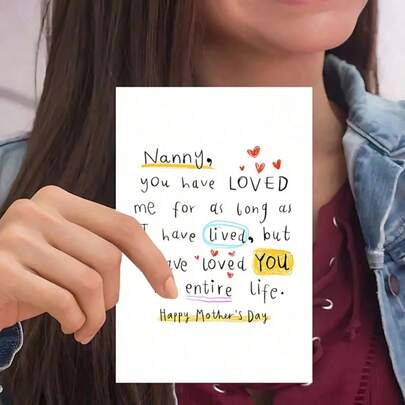 Nanny,
you have LOVED
me for as long as
I have lived, but
ve loved YOU
entire life.
Happy Mother's Day